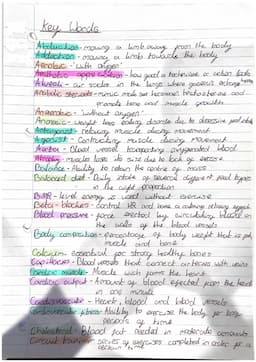 Key Words
Abduction - moving a limb away from the body
Adduction - moving a limb towards the body
Aerobic - 'with oxygen'
Aesthetic appreciation - how good a technique or action looks
Alveoli - air sacks in the lungs where gaseous exchange
Anabolic steroids - mimic male sex hormone testosterone and
promote bone and muscle growth
Anaerobic - 'without oxygen'
Anorexia - weight loss eating disorder
Antagonist - relaxing muscle during movement
Agonist - contracting muscle during movement
Aorta - Blood vessel transporting oxygenated blood
Atrophy - muscles lose its size due to lack of exercise
Balance - Ability to retain the centre of mass
Balanced diet - Daily intake of different food types
in the right proportion
BMR - level energy is used without exercise
Beta-blockers - control HR and have a calming effect
Blood pressure - force exerted by circulating blood on
the walls of the blood vessels
Body composition - percentage of body weight that is fat,
muscle and bone
Calcium - essential for strong healthy bones
Capillaries - Blood vessels that connect arteries with veins
Cardiac muscle - Muscle which forms the heart
Cardiac output - Amount of blood ejected from the heart
in one minute
Cardiovascular - Heart, blood and blood vessels
Cardiovascular fitness - Ability to exercise the body for long
periods of time
Cholesterol - Blood fat needed in
Circuit training - series of exercises completed in order